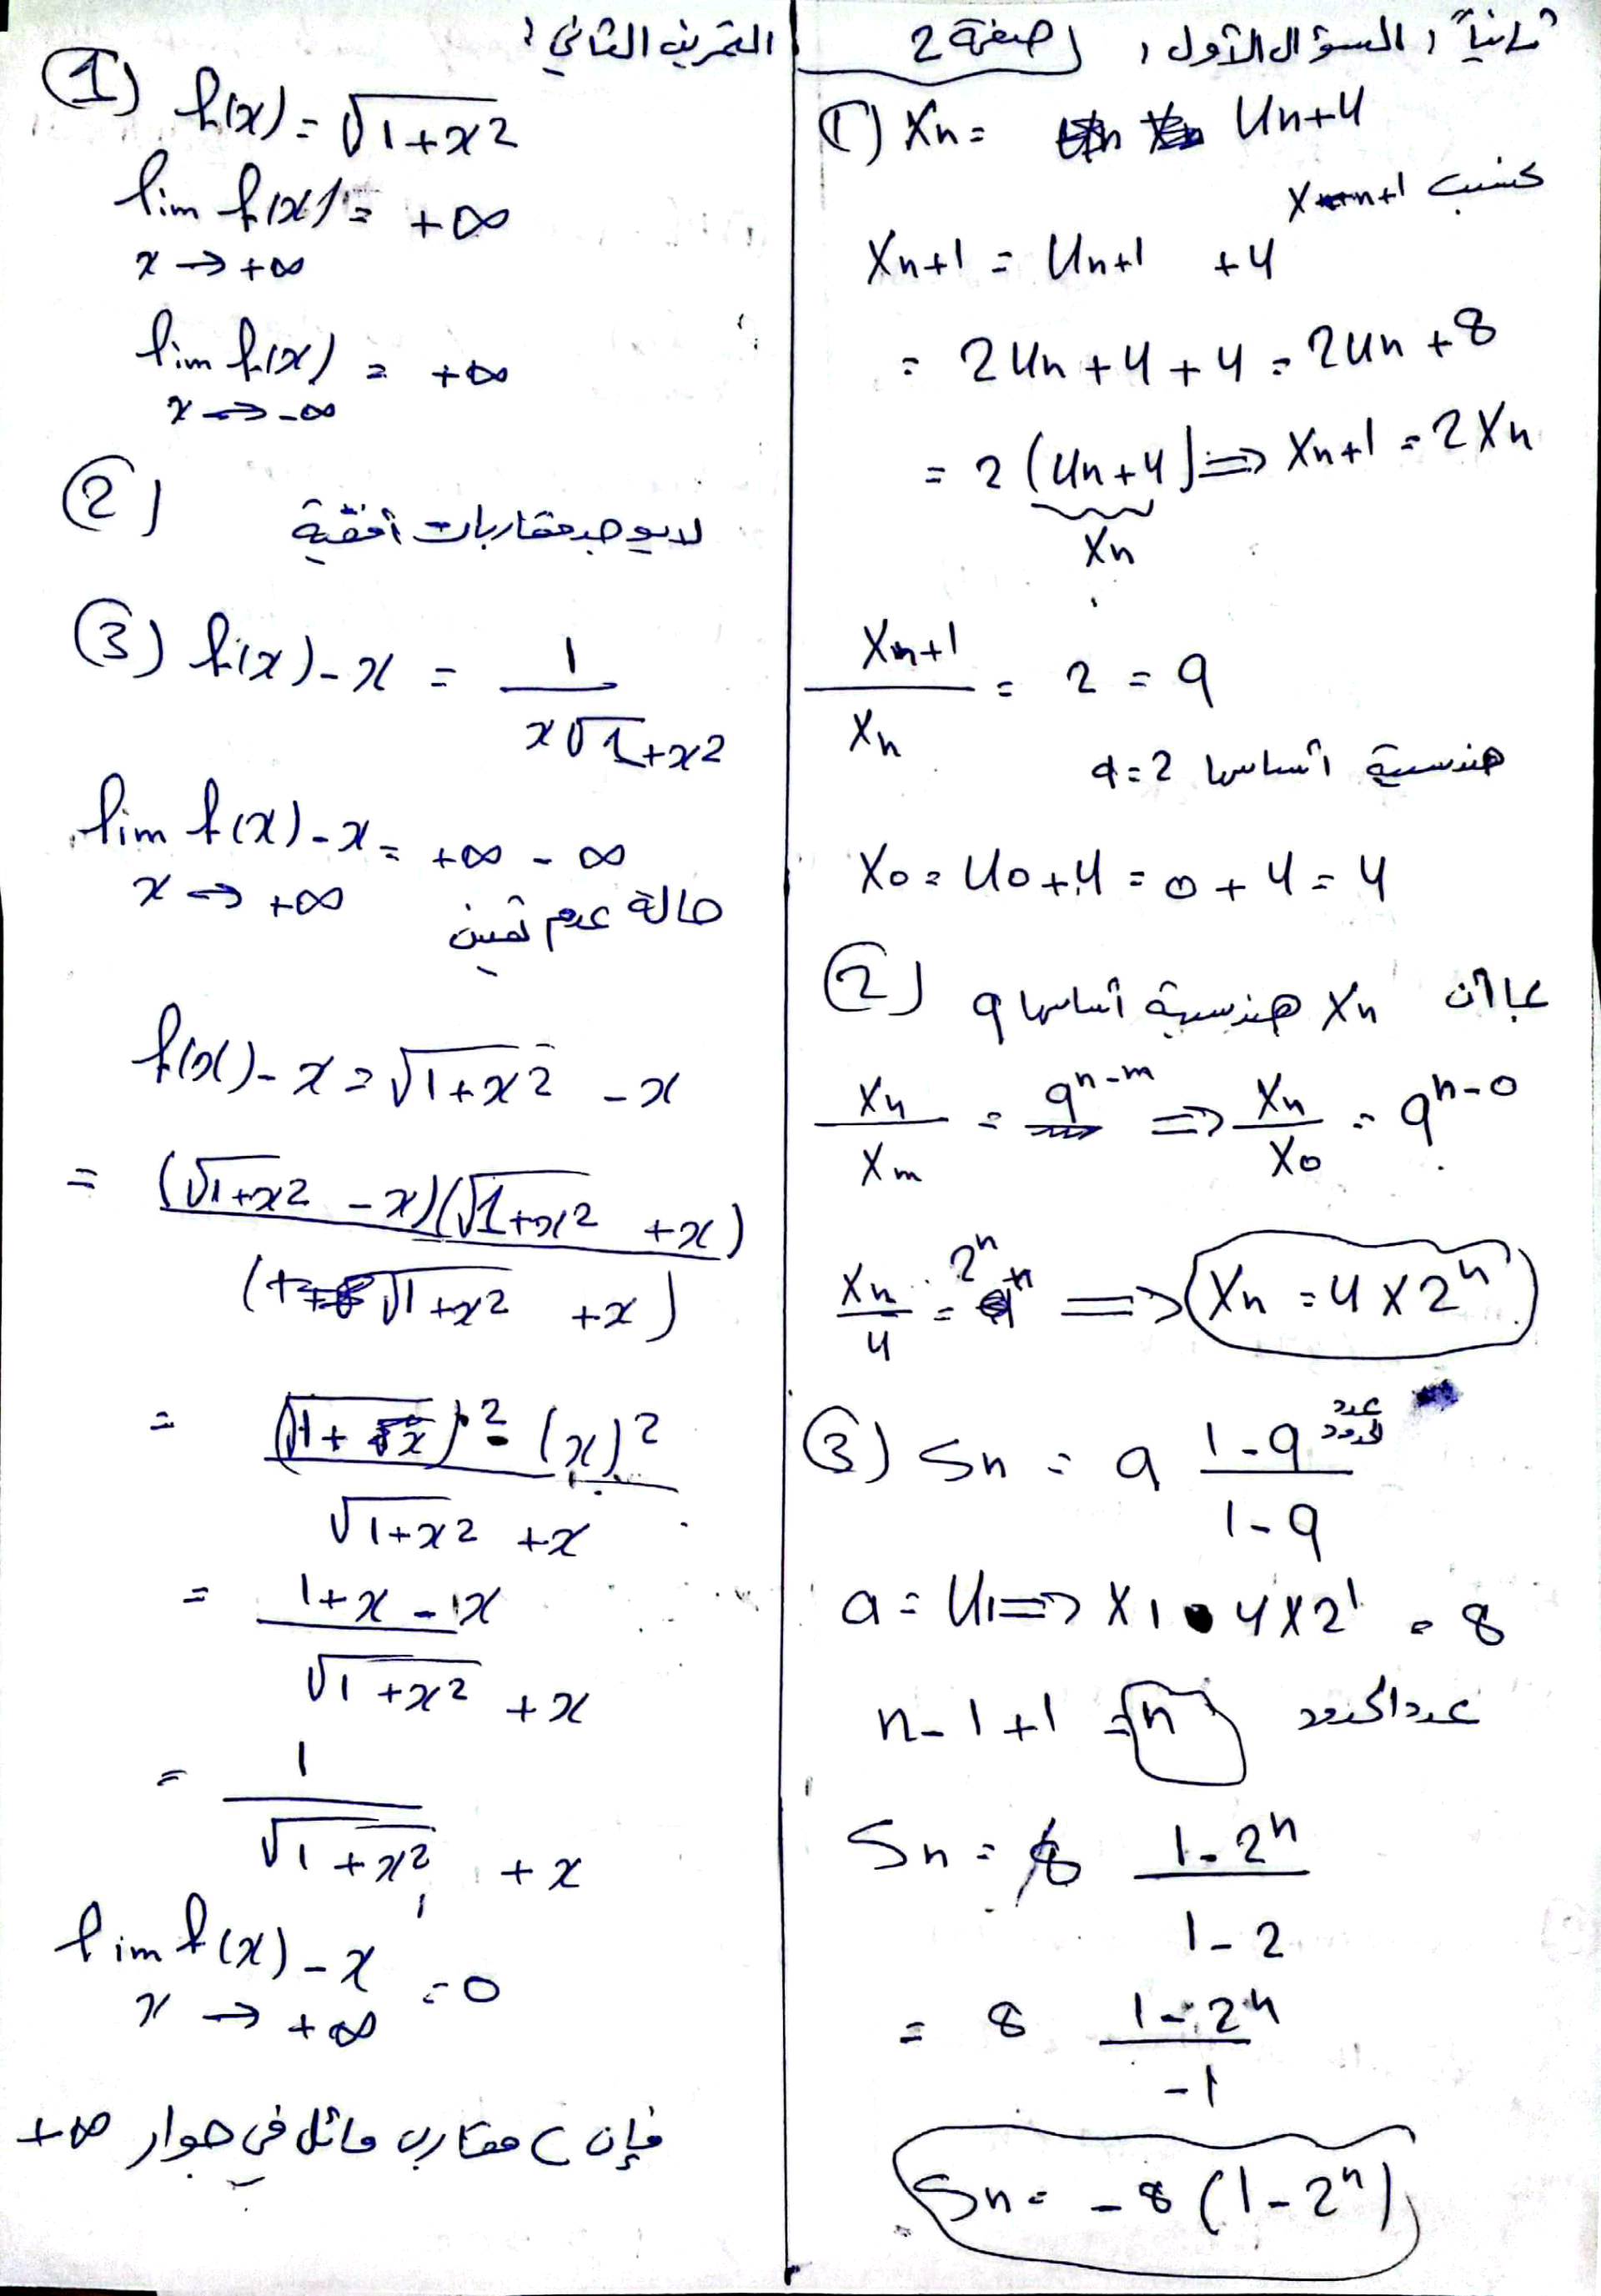 ثانياً، السؤال الأول، صفحة 2
1) Xn = Un+4
نحسب Xn+1
Xn+1 = Un+1 +4
= 2Un + 4 + 4 = 2Un + 8
= 2 (Un + 4) ⇒ Xn+1 = 2Xn
Xn
Xn+1 / Xn = 2 = q
هندسية أساسها q=2
X0 = U0 + 4 = 0 + 4 = 4
2) بما أن Xn هندسية أساسها q
Xn / Xm = q^(n-m) ⇒ Xn / X0 = q^(n-0)
Xn / 4 = 2^n ⇒ Xn = 4 X 2^n
3) Sn = a (1-q^عدد الحدود) / (1-q)
a = U1 ⇒ X1 = 4X2^1 = 8
n-1+1 = n عدد الحدود
Sn = 8 (1-2^n) / (1-2)
= 8 (1-2^n) / (-1)
Sn = -8 (1-2^n)
التمرين الثاني:
1) f(x) = √(1+x²)
lim f(x) = +∞
x → +∞
lim f(x) = +∞
x → -∞
2) لا يوجد مقاربات أفقية
3) f(x) - x = 1 / (x√(1+x²))
lim f(x) - x = +∞ - ∞
x → +∞ حالة عدم تعيين
f(x) - x = √(1+x²) - x
= (√(1+x²) - x)(√(1+x²) + x)
(√(1+x²) + x)
= (√(1+x))² - (x)²
√(1+x²) + x
= 1+x-x
√(1+x²) + x
= 1
√(1+x²) + x
lim f(x) - x = 0
x → +∞
فإن C مقارب مائل في جوار +∞